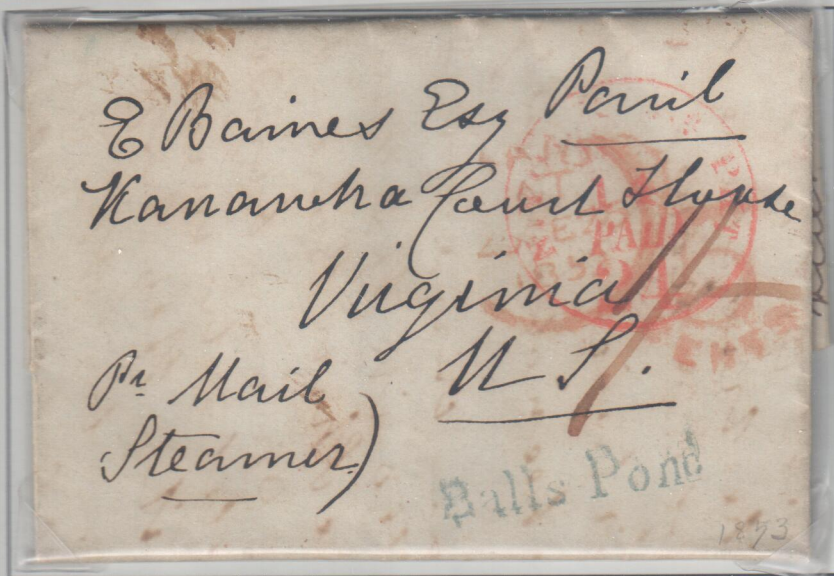 E Baines Esq Paid
Kanawha Court House
Virginia
U S.
Pr Mail
Steamer
PAID
24
Balls Pond
1853